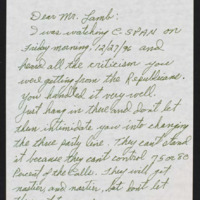 Dear Mr. Lamb:
I was watching C-SPAN on
Friday morning, 12/27/96 and
heard all the criticism you
were getting from the Republicans.
You handled it very well.
Just hang in there and don't let
them intimidate you into changing
the three party line. They can't stand
it because they can't control 75 or 80
Percent of the Calls. They will get
nastier and nastier, but don't let